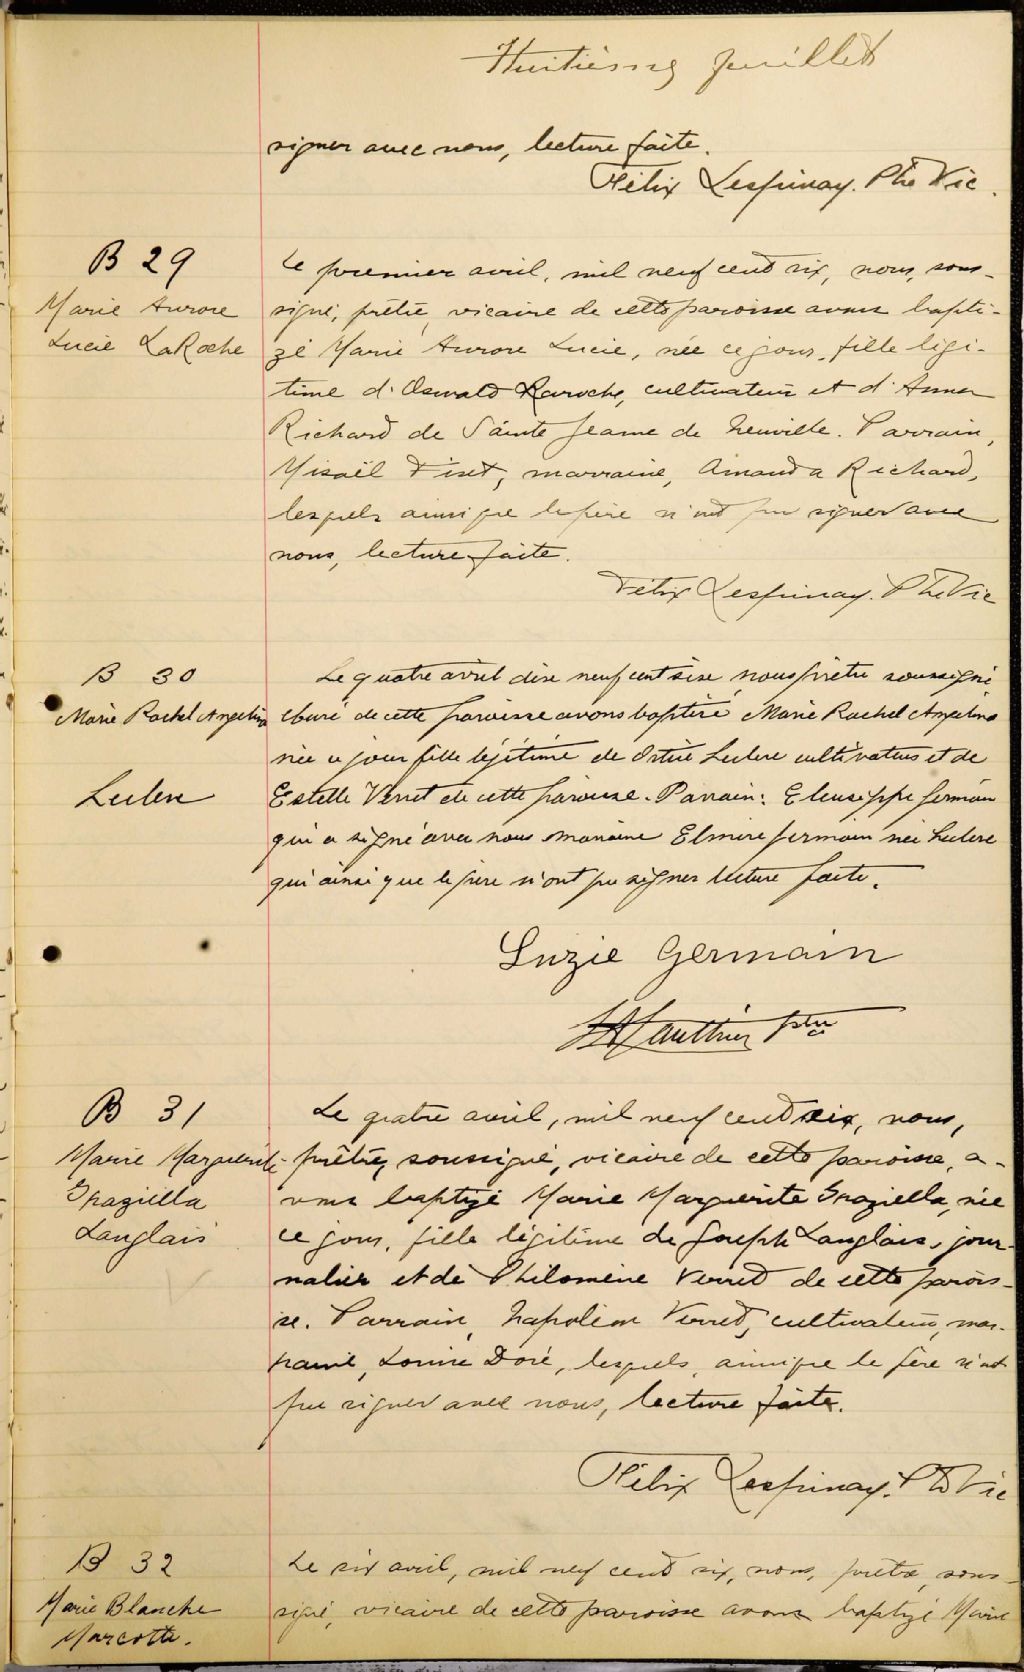 Huitième feuillet
signer avec nous, lecture faite.
Félix Lespinay. Ptre Vic.
B 29
Marie Aurore
Lucie LaRoche
Le premier avril, mil neuf cent six, nous, sous-
signé, prêtre, vicaire de cette paroisse avons bapti-
zé Marie Aurore Lucie, née ce jour, fille légi-
time d'Oswald Laroche, cultivateur et d'Anna
Richard de Sainte Jeanne de Neuville. Parrain,
Misaël Piset, marraine, Amanda Richard,
lesquels ainsi que le père n'ont pu signer avec
nous, lecture faite.
Félix Lespinay. Ptre Vic
B 30
Marie Rachel Angelina
Leclerc
Le quatre avril dix neuf cent six nous prêtre soussigné
curé de cette paroisse avons baptisé Marie Rachel Angelina
née ce jour fille légitime de Leclerc cultivateur et de
Estelle Verret de cette paroisse. Parrain: Eleusippe Germain
qui a signé avec nous marraine Elmire Germain née Leclerc
qui ainsi que le père n'ont pu signer lecture faite.
Suzie Germain
Gauthier ptre
B 31
Marie Marguerite
Graziella
Langlais
Le quatre avril, mil neuf cent six, nous,
prêtre, soussigné, vicaire de cette paroisse, a-
vons baptizé Marie Marguerite Graziella, née
ce jour, fille légitime de Joseph Langlais, jour-
nalier et de Philomène Verret de cette parois-
se. Parrain, Napoléon Verret, cultivateur, mar-
raine, Louise Doré, lesquels, ainsi que le père n'ont
pu signer avec nous, lecture faite.
Félix Lespinay. Ptre Vic
B 32
Marie Blanche
Marcotte.
Le six avril, mil neuf cent six, nous, prêtre, sous-
signé, vicaire de cette paroisse avons baptizé Marie